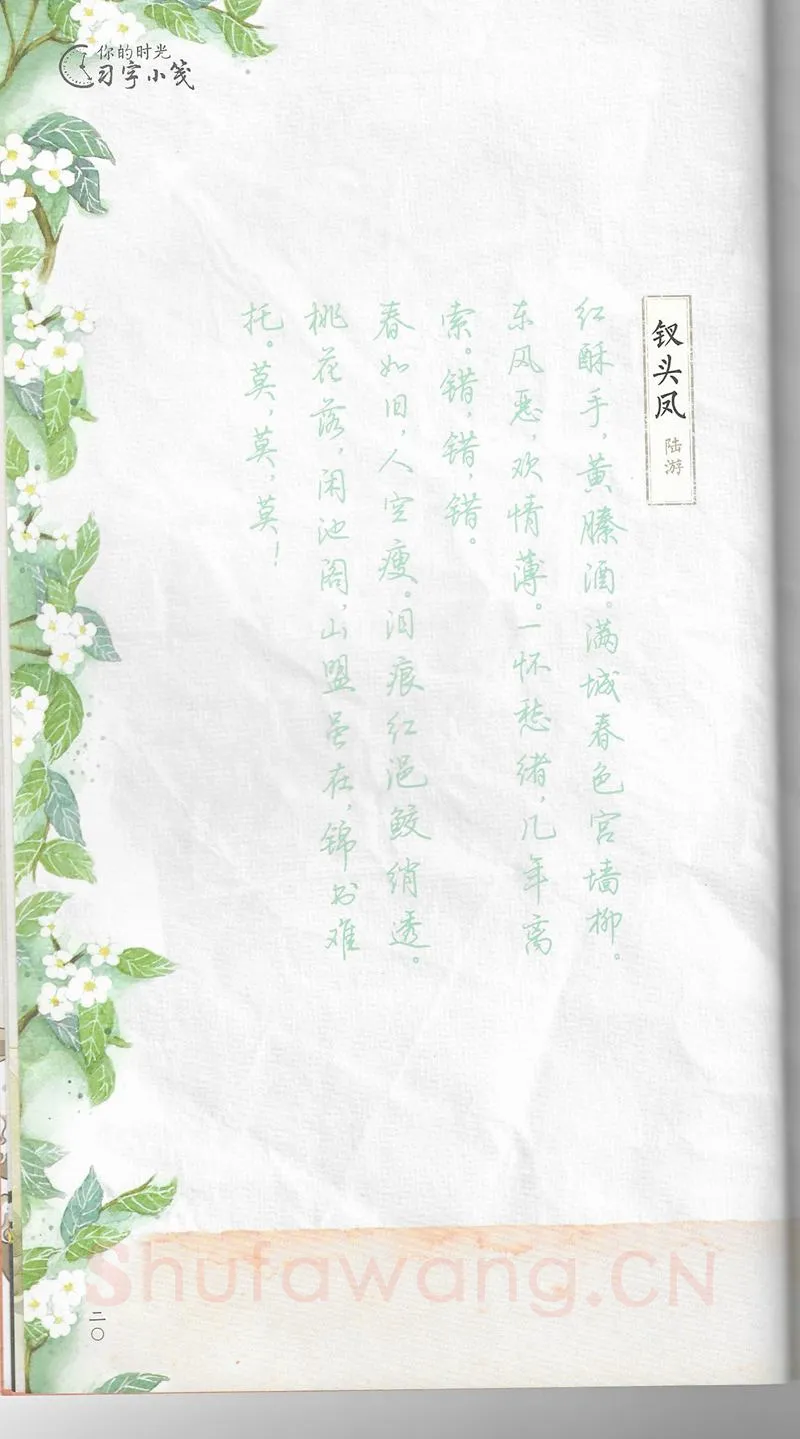 你的时光
习字小笺
钗头凤 陆游
红酥手，黄滕酒。满城春色宫墙柳。
东风恶，欢情薄。一怀愁绪，几年离
索。错，错，错。
春如旧，人空瘦。泪痕红浥鲛绡透。
桃花落，闲池阁，山盟虽在，锦书难
托。莫，莫，莫！
二〇
Shufawang.CN